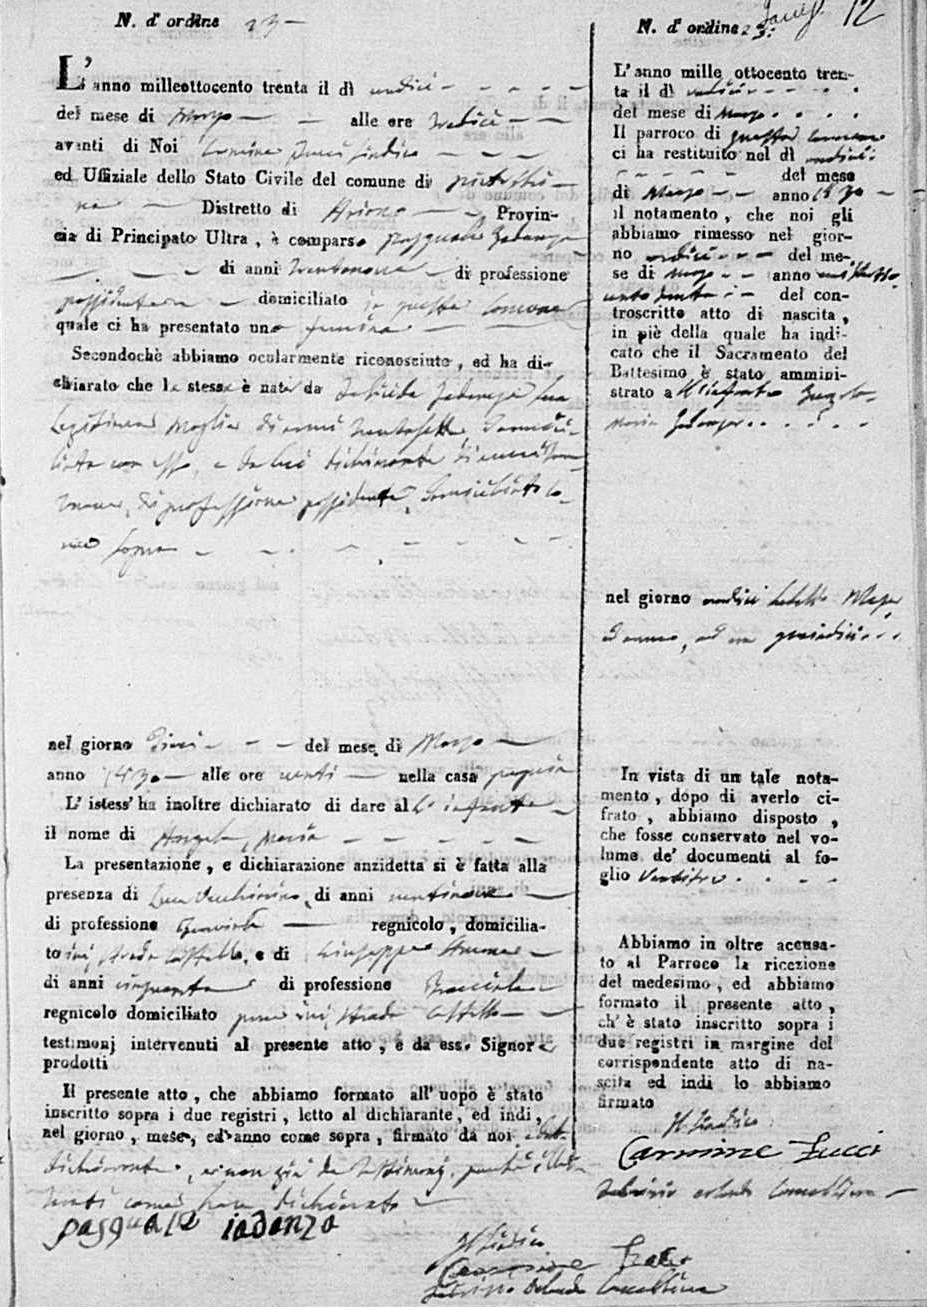 N. d'ordine 23
L'anno milleottocento trenta il dì undici
del mese di Marzo alle ore tredici
avanti di Noi Carmine Fucci Sindaco
ed Uffiziale dello Stato Civile del comune di
Distretto di Ariano Provin-
cia di Principato Ultra, è comparso Pasquale Iadanza
di anni trentanove di professione
possidente domiciliato in questo Comune
quale ci ha presentato una femina
Secondochè abbiamo ocularmente riconosciuto, ed ha di-
chiarato che la stessa è nata da Iadanza sua
legittima Moglie di anni trentasette, domici-
liata con esso, e da lui dichiarante di anni tren-
tanove, di professione possidente, domiciliato co-
me sopra
nel giorno dieci del mese di Marzo
anno 1830 alle ore venti nella casa propria
L'istess' ha inoltre dichiarato di dare all'infante
il nome di Angela Maria
La presentazione, e dichiarazione anzidetta si è fatta alla
presenza di Luca di anni ventinove
di professione regnicolo, domicilia-
to ivi, strada Castello, e di Giuseppe
di anni cinquanta di professione Bracciale
regnicolo domiciliato pure ivi, strada Castello
testimonj intervenuti al presente atto, e da esso Signor
prodotti
Il presente atto, che abbiamo formato all'uopo è stato
inscritto sopra i due registri, letto al dichiarante, ed indi,
nel giorno, mese, ed anno come sopra, firmato da noi,
dichiarante, e non già da testimonj, perchè illet-
terati come han dichiarato
pasquale iadanza
Il Sindaco
Carmine Fucci
12
N. d'ordine 23
L'anno mille ottocento tren-
ta il dì undici
del mese di Marzo
Il parroco di questo comune
ci ha restituito nel dì undici
del mese
di Marzo anno 1830
il notamento, che noi gli
abbiamo rimesso nel gior-
no undici del me-
se di Marzo anno milleotto-
cento trenta del con-
troscritto atto di nascita,
in piè della quale ha indi-
cato che il Sacramento del
Battesimo è stato ammini-
strato a l'infante Angela
Maria Iadanza
nel giorno undici
ed anno
In vista di un tale nota-
mento, dopo di averlo ci-
frato, abbiamo disposto,
che fosse conservato nel vo-
lume de' documenti al fo-
glio ventitre
Abbiamo in oltre accusa-
to al Parroco la ricezione
del medesimo, ed abbiamo
formato il presente atto,
ch'è stato inscritto sopra i
due registri in margine del
corrispondente atto di na-
scita ed indi lo abbiamo
firmato
Il Sindaco
Carmine Fucci